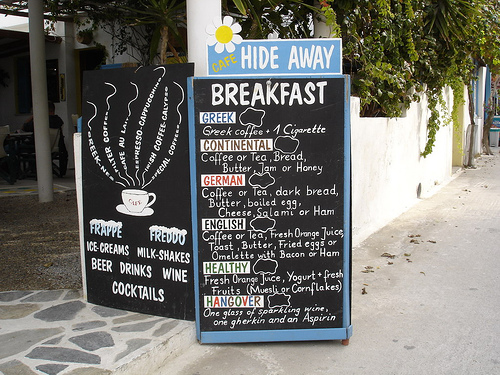 CAFE HIDE AWAY
BREAKFAST
GREEK
Greek coffee + 1 Cigarette
CONTINENTAL
Coffee or Tea, Bread,
Butter, Jam or Honey
GERMAN
Coffee or Tea, dark bread,
Butter, boiled egg,
Cheese, Salami or Ham
ENGLISH
Coffee or Tea, Fresh Orange Juice,
Toast, Butter, Fried eggs or
Omelette with Bacon or Ham
HEALTHY
Fresh Orange Juice, Yogurt + fresh
Fruits (Muesli or Cornflakes)
HANGOVER
One glass of sparkling wine,
one gherkin and an Aspirin
FRAPPE FREDDO
ICE-CREAMS MILK-SHAKES
BEER DRINKS WINE
COCKTAILS